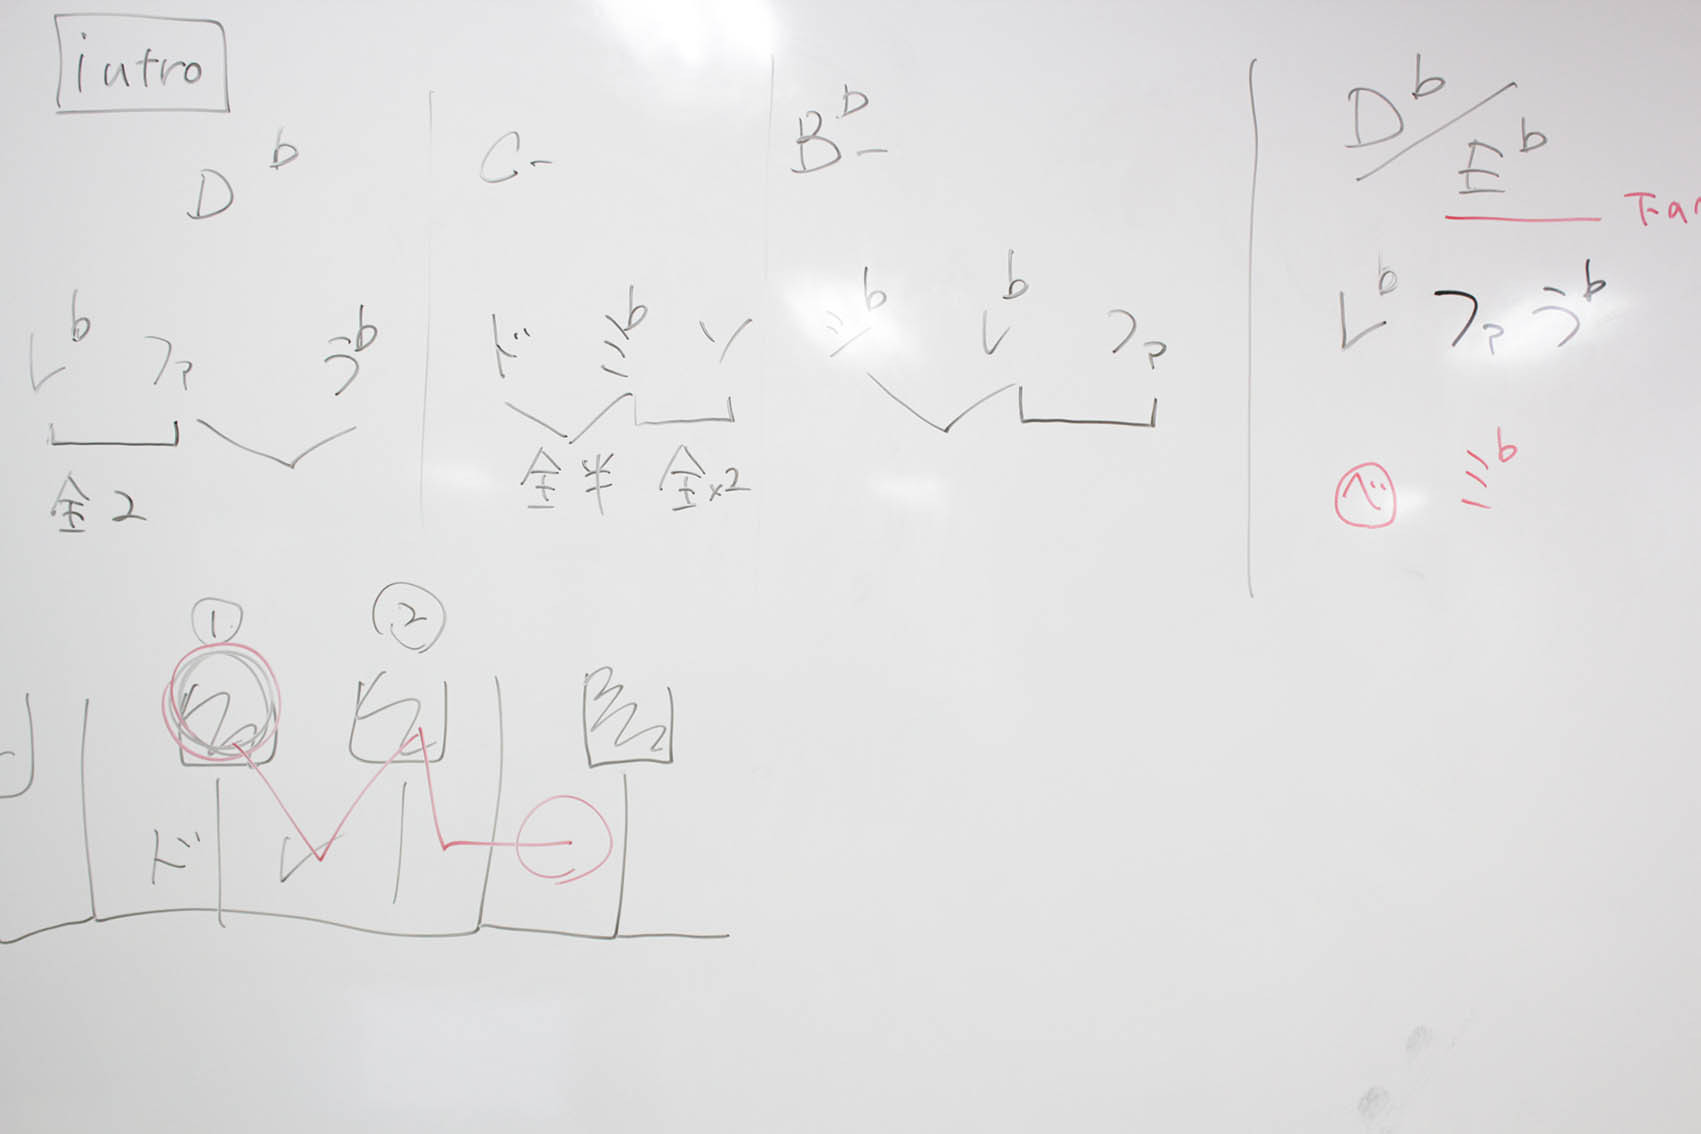 intro
D♭ C- B♭- D♭/E♭
レ♭ ファ ラ♭ ド ミ♭ ソ シ♭ レ♭ ファ レ♭ ファ ラ♭
全2 全半 全×2 ベ ミ♭
① ②
ド レ